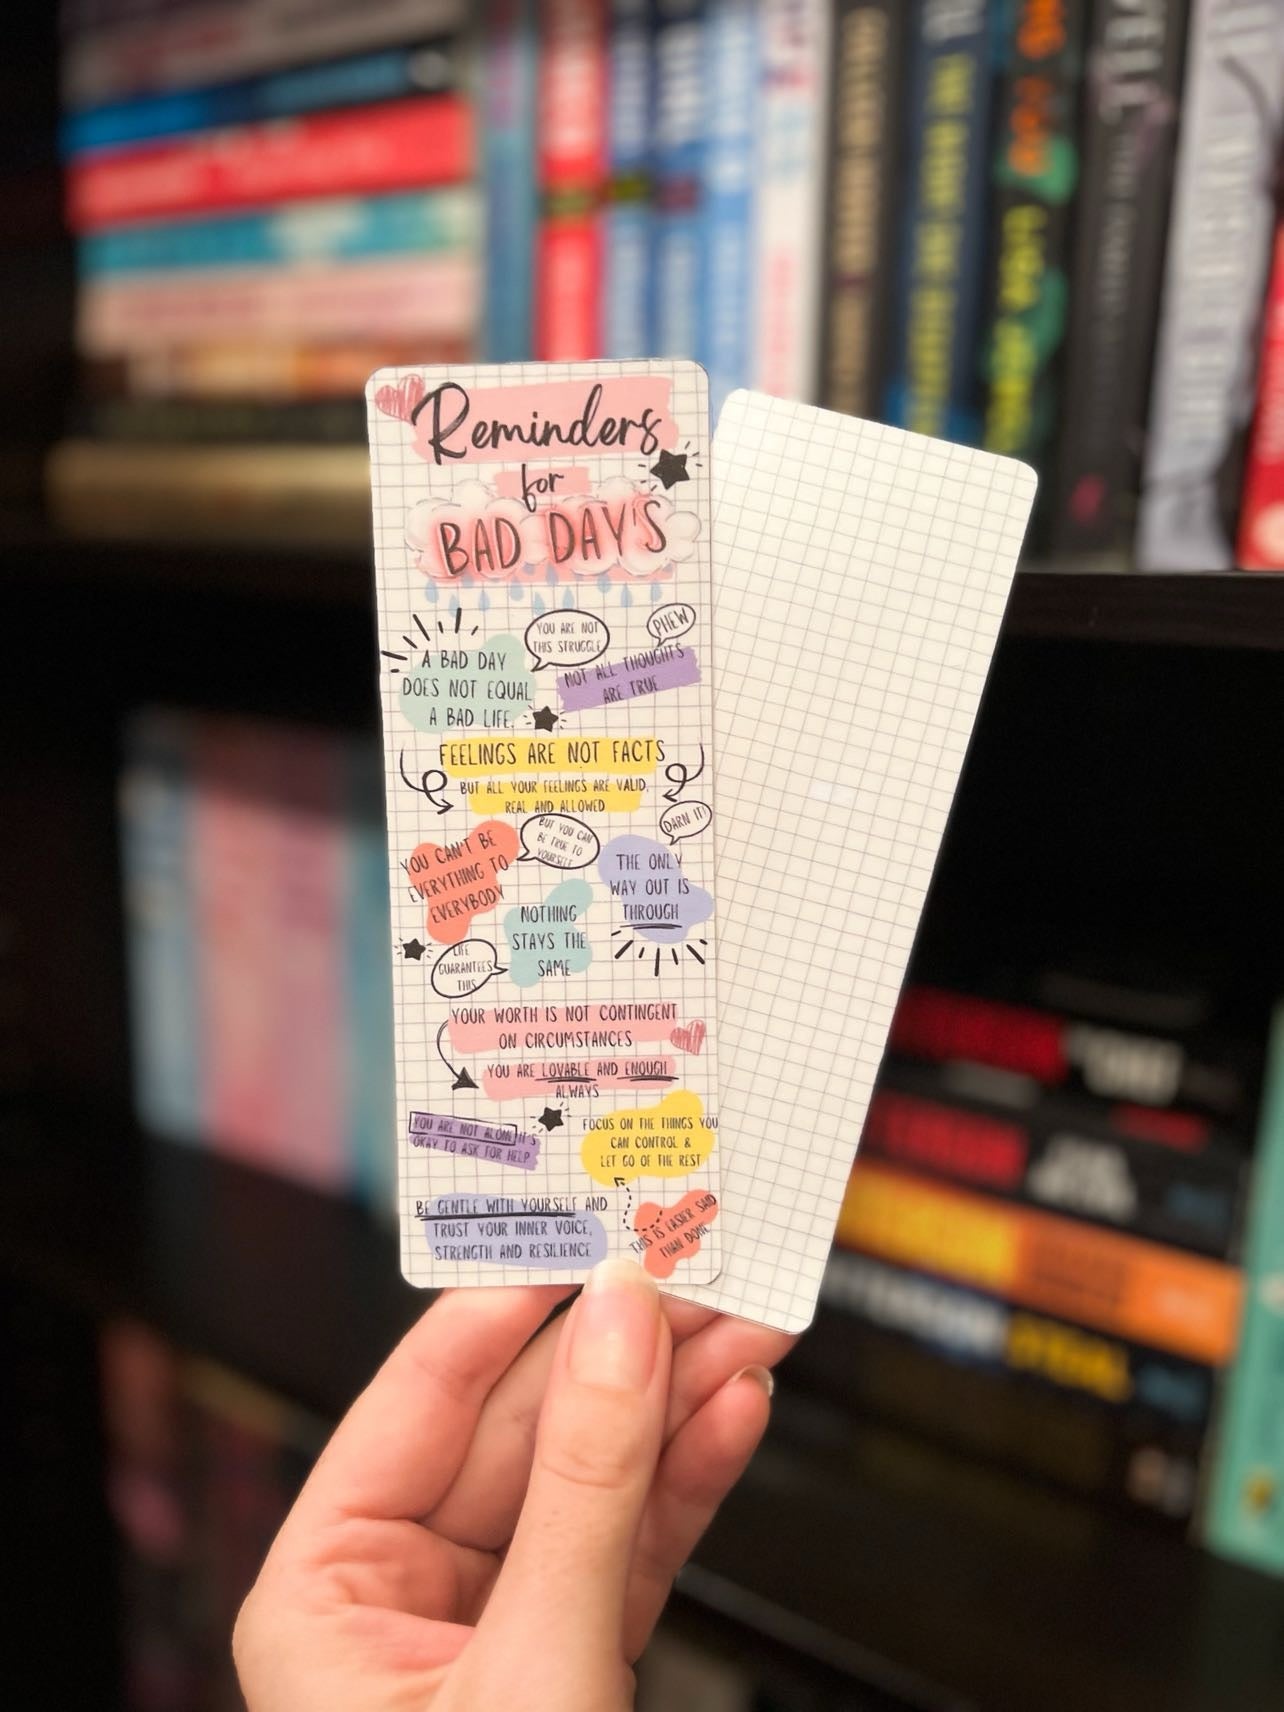 Reminders
for
BAD DAY'S
YOU ARE NOT
THIS STRUGGLE
PHEW
A BAD DAY
DOES NOT EQUAL
A BAD LIFE.
NOT ALL THOUGHTS
ARE TRUE
FEELINGS ARE NOT FACTS
BUT ALL YOUR FEELINGS ARE VALID,
REAL AND ALLOWED
DARN IT!
YOU CAN'T BE
EVERYTHING TO
EVERYBODY
BUT YOU CAN
BE TRUE TO
YOURSELF
THE ONLY
WAY OUT IS
THROUGH
NOTHING
STAYS THE
SAME
LIFE
GUARANTEES
THIS
YOUR WORTH IS NOT CONTINGENT
ON CIRCUMSTANCES
YOU ARE LOVABLE AND ENOUGH
ALWAYS
YOU ARE NOT ALONE IT'S
OKAY TO ASK FOR HELP
FOCUS ON THE THINGS YOU
CAN CONTROL &
LET GO OF THE REST
BE GENTLE WITH YOURSELF AND
TRUST YOUR INNER VOICE,
STRENGTH AND RESILIENCE
THIS IS EASIER SAID
THAN DONE